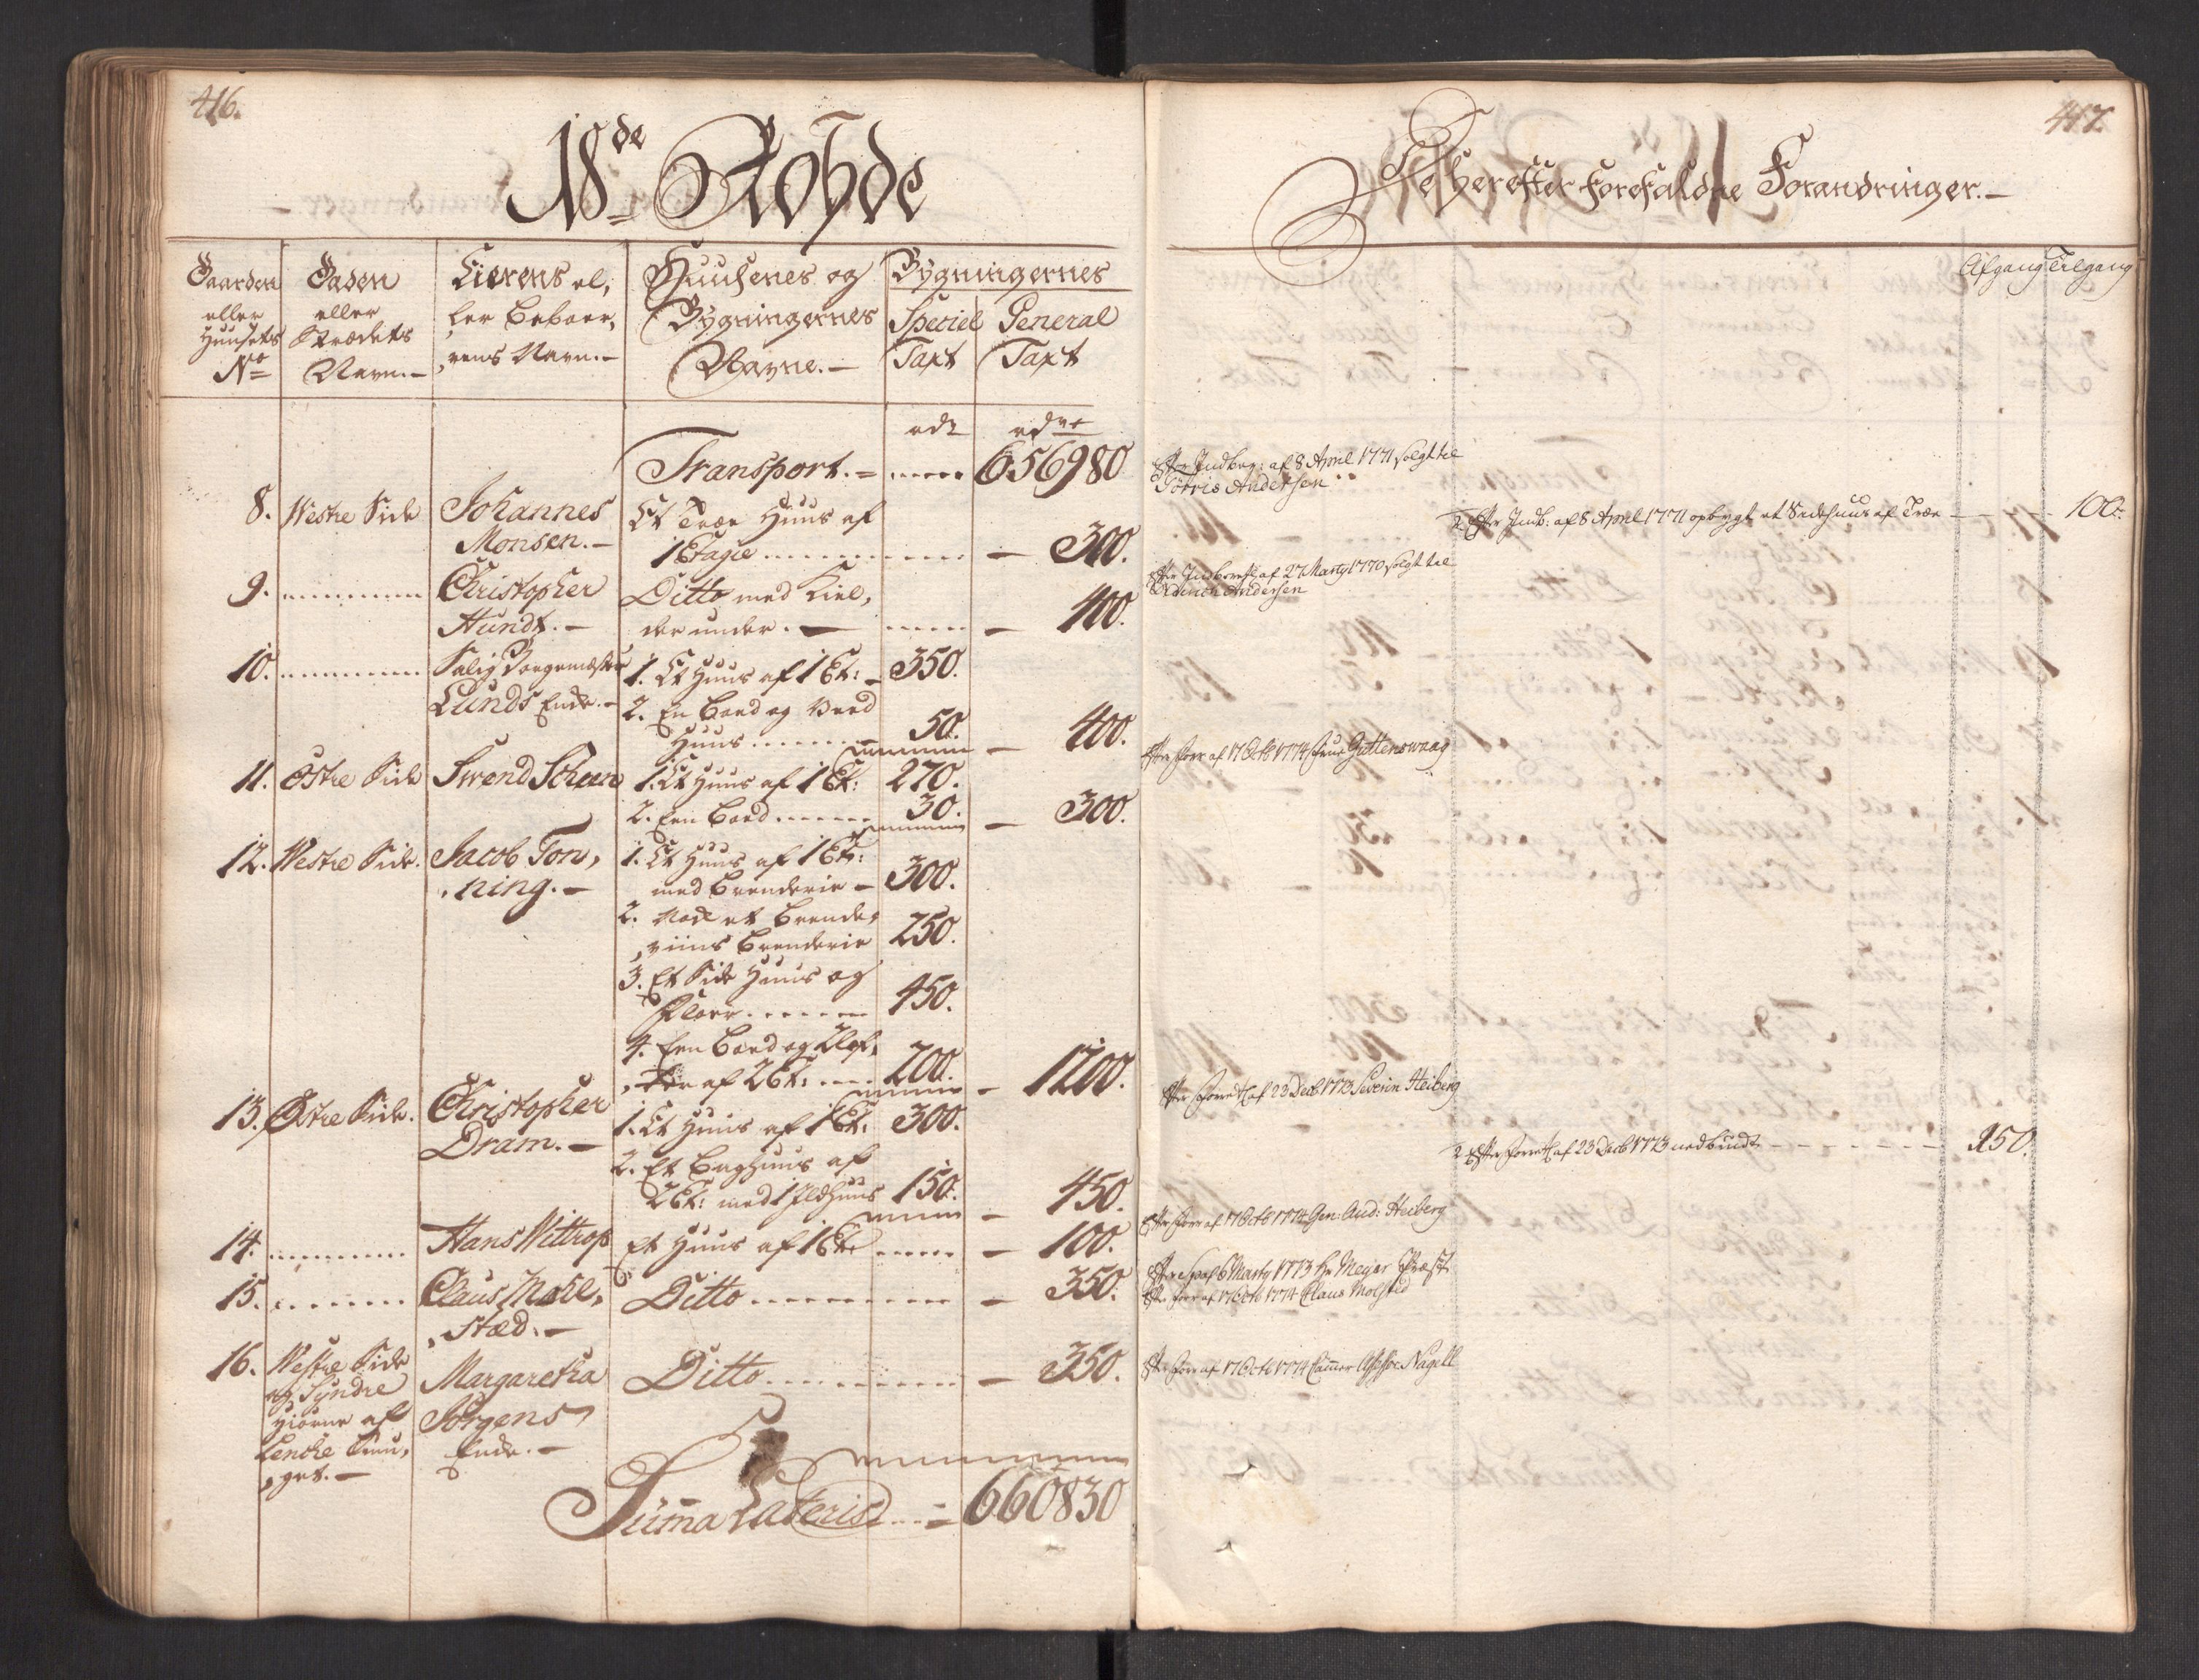 416.
18de Rohde
Gaarden
eller
Huusets
No
Gaden
eller
Strædets
Navn.-
Eierens el,
ler Beboer,
,rens Navn.-
Huusenes og
Bygningernes
Navne.-
Bygningernes
Speciel
Taxt
General
Taxt
rdr
Transport.- 656980
8. Westre Side Johannes
Monsen.-
Et Træe Huus af
1 Etage 300.
9. Christopher
Hundt.-
Ditto med Kiel,
der under.- 400.
10. Salig Borgemæster
Lunds Enke.-
1. Et Huus af 1 Et: 350.
2. En Boed og Veed
Huus 50. 400.
11. Østre Side Swend Scheen
1. Et Huus af 1 Et: 270.
2. Een Boed 30. 300.
12. Westre Side. Jacob Ton,
,ning.-
1. Et Huus af 1 Et:
med Brenderie - 300.
2. Nock et Brende,
,viins Brenderie 250.
3. Et Side Huus og
Floer 450.
4. Een Boed og
af 2 Et: 200. 1200.
13. Østre Side. Christopher
Dram.-
1. Et Huus af 1 Et: 300.
2. Et Baghuus af
2 Et: med 1 Ildhuus 150. 450.
14. Hans Wittrop Et Huus af 1 Et: 100.
15. Claus Mohl,
,stæd.-
Ditto 350.
16. Westre Side
og Syndre
Hiørne af
Lenche Smu,
,get.-
Margaretha
Jörgens
Enke.-
Ditto 350.
Summa Lateris 660830
417.
De herefter forefaldne Forandringer.-
Afgang Tilgang
Efter Indber: af 8 April 1771 solgt til
Andersen
2 Efter Indb: af 8 April 1771 opbygt et Sidehuus af Træe 100.
Efter Indberetl af 27 Marty 1770 solgt til
Andersen
Efter Forr af 17 Octb 1774
Efter Forretl af 23 Decb 1773 Severin Heiberg
2 Efter Forretl af 23 Decb 1773 nedbrudt 150.
Efter Forr af 17 Octb 1774 Gen: Aud: Heiberg
Efter af 6 Marty 1773 Hr Meyer Præst
Efter Forr af 17 Octb 1774 Claus Molsted
Efter Forr af 17 Octb 1774 Cammer Assessor Nagell